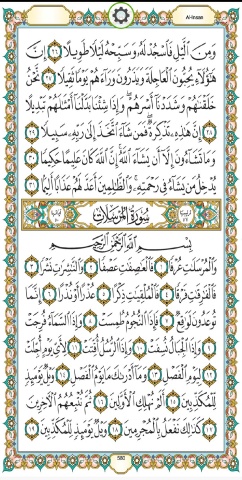 Al-Insan
وَمِنَ ٱلَّيْلِ فَٱسْجُدْ لَهُۥ وَسَبِّحْهُ لَيْلًا طَوِيلًا ٢٦ إِنَّ
هَٰٓؤُلَآءِ يُحِبُّونَ ٱلْعَاجِلَةَ وَيَذَرُونَ وَرَآءَهُمْ يَوْمًا ثَقِيلًا ٢٧ نَّحْنُ
خَلَقْنَٰهُمْ وَشَدَدْنَآ أَسْرَهُمْ وَإِذَا شِئْنَا بَدَّلْنَآ أَمْثَٰلَهُمْ تَبْدِيلًا
٢٨ إِنَّ هَٰذِهِۦ تَذْكِرَةٌ فَمَن شَآءَ ٱتَّخَذَ إِلَىٰ رَبِّهِۦ سَبِيلًا ٢٩
وَمَا تَشَآءُونَ إِلَّآ أَن يَشَآءَ ٱللَّهُ إِنَّ ٱللَّهَ كَانَ عَلِيمًا حَكِيمًا ٣٠
يُدْخِلُ مَن يَشَآءُ فِى رَحْمَتِهِۦ وَٱلظَّٰلِمِينَ أَعَدَّ لَهُمْ عَذَابًا أَلِيمًۢا ٣١
سُورَةُ المُرْسَلَات
بِسْمِ ٱللَّهِ ٱلرَّحْمَٰنِ ٱلرَّحِيمِ
وَٱلْمُرْسَلَٰتِ عُرْفًا ١ فَٱلْعَٰصِفَٰتِ عَصْفًا ٢ وَٱلنَّٰشِرَٰتِ نَشْرًا ٣
فَٱلْفَٰرِقَٰتِ فَرْقًا ٤ فَٱلْمُلْقِيَٰتِ ذِكْرًا ٥ عُذْرًا أَوْ نُذْرًا ٦ إِنَّمَا
تُوعَدُونَ لَوَٰقِعٌ ٧ فَإِذَا ٱلنُّجُومُ طُمِسَتْ ٨ وَإِذَا ٱلسَّمَآءُ فُرِجَتْ
٩ وَإِذَا ٱلْجِبَالُ نُسِفَتْ ١٠ وَإِذَا ٱلرُّسُلُ أُقِّتَتْ ١١ لِأَىِّ يَوْمٍ أُجِّلَتْ
١٢ لِيَوْمِ ٱلْفَصْلِ ١٣ وَمَآ أَدْرَىٰكَ مَا يَوْمُ ٱلْفَصْلِ ١٤ وَيْلٌ يَوْمَئِذٍ
لِّلْمُكَذِّبِينَ ١٥ أَلَمْ نُهْلِكِ ٱلْأَوَّلِينَ ١٦ ثُمَّ نُتْبِعُهُمُ ٱلْءَاخِرِينَ
١٧ كَذَٰلِكَ نَفْعَلُ بِٱلْمُجْرِمِينَ ١٨ وَيْلٌ يَوْمَئِذٍ لِّلْمُكَذِّبِينَ ١٩
580